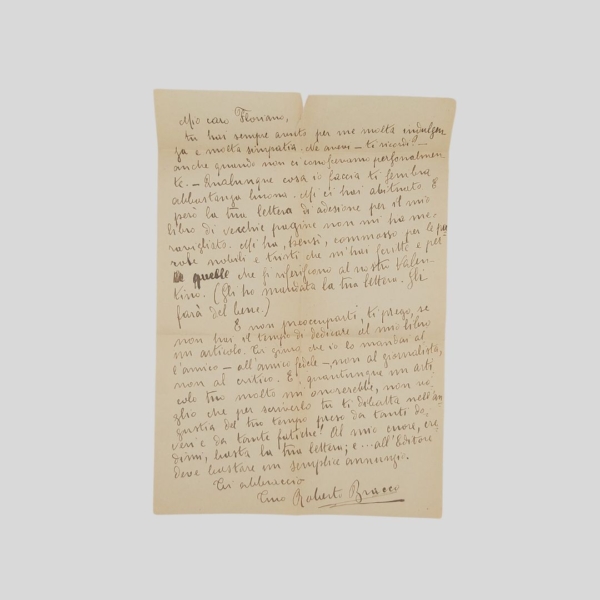 Mio caro Floriano,
tu hai sempre avuto per me molta indulgen
za e molta simpatia che avevi – ti ricordi? –
anche quando non ci conoscevamo personalmen
te. – Qualunque cosa io faccia ti sembra
abbastanza buona. Mi ci hai abituato. E
però la tua lettera di adesione per il mio
libro di vecchie pagine non mi ha me-
ravigliato. Mi ha, bensì, commosso per le pa
role nobili e tristi che m'hai scritte e per
quelle che si riferiscono al nostro Valen
tino. (Gli ho mandata la tua lettera. Gli
farà del bene.)
E non preoccuparti, ti prego, se
non hai il tempo di dedicare al mio libro
un articolo. Ti giuro che io lo mandai al
l'amico – all'amico fedele –, non al giornalista,
non al critico. E, quantunque un arti
colo tuo molto mi onorerebbe, non vo
glio che per scriverlo tu ti dibatta nell'an
gustia del tuo tempo preso da tanti do
veri e da tante fatiche! Al mio cuore, cre
dimi, basta la tua lettera; e ... all'Editore
deve bastare un semplice annunzio.
Ti abbraccio
Tuo Roberto Bracco